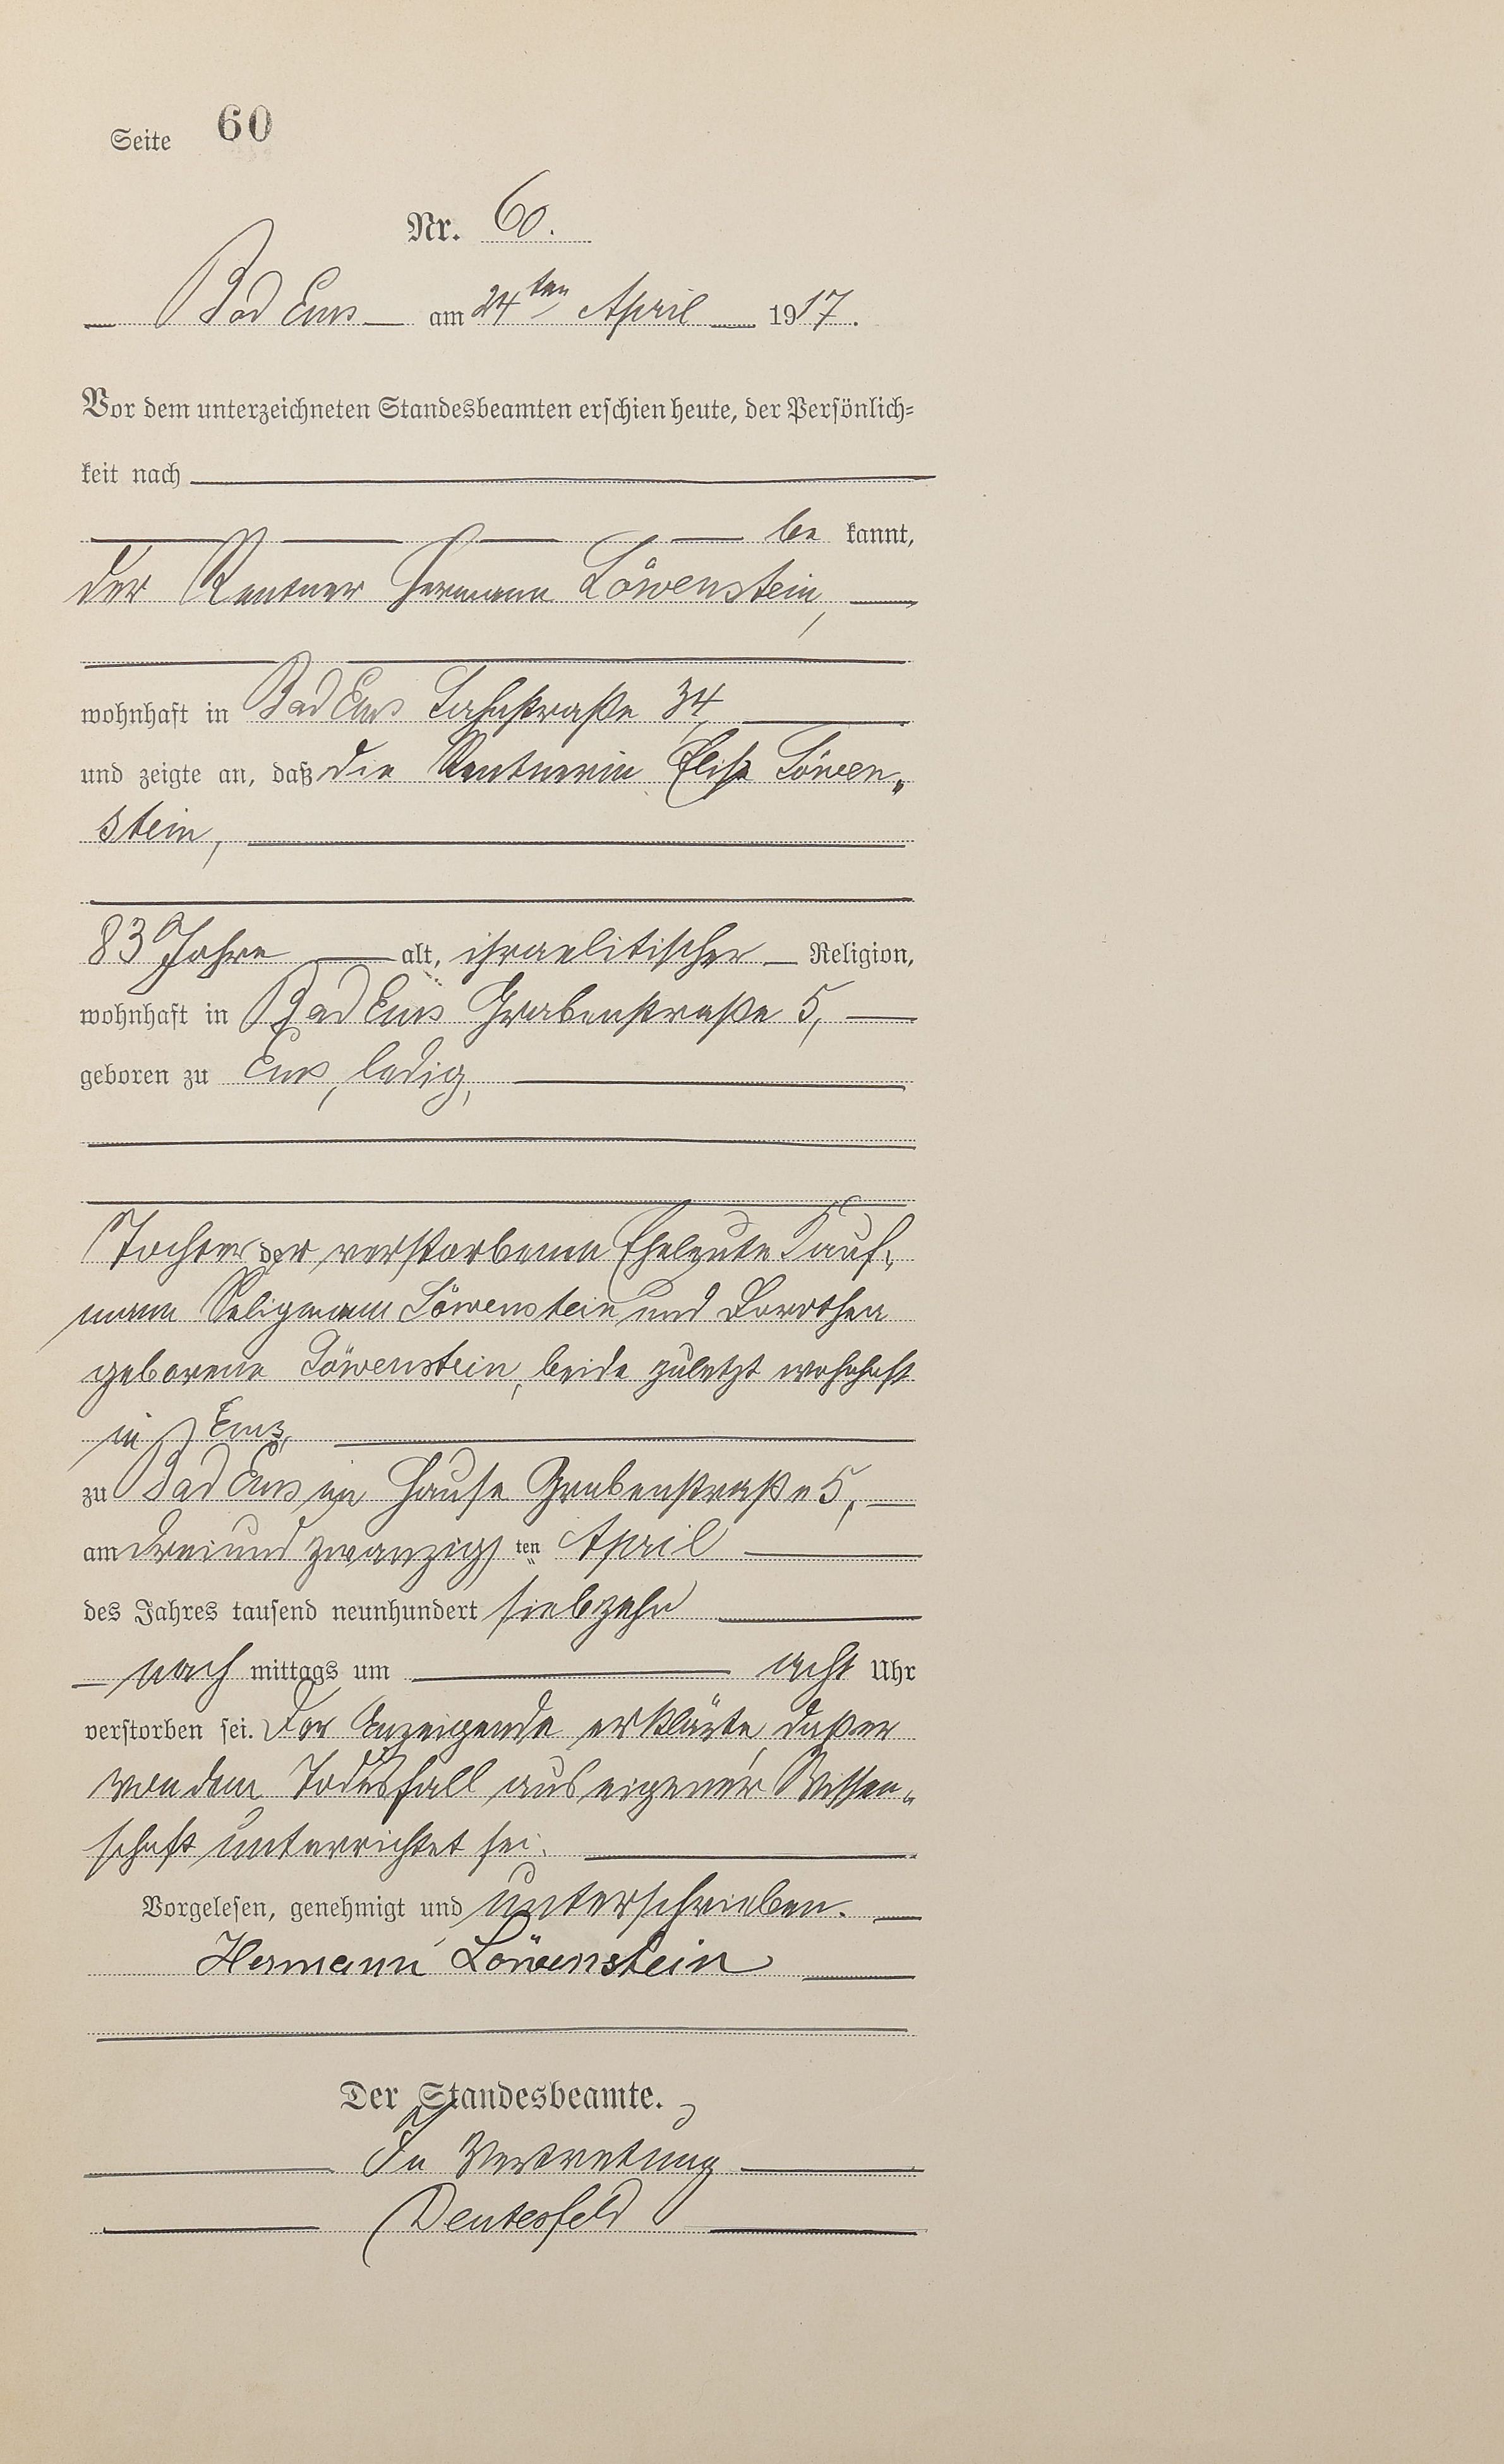 Seite 60
Nr. 60.
Bad Ems am 24ten April 1917.
Vor dem unterzeichneten Standesbeamten erschien heute, der Persönlich-
keit nach
be kannt,
der Rentner Hermann Löwenstein,
wohnhaft in Bad Ems Lahnstraße 34
und zeigte an, daß die Rentnerin Elise Löwen„
stein,
83 Jahre alt, israelitischer Religion,
wohnhaft in Bad Ems Grabenstraße 5,
geboren zu Ems, ledig,
Tochter der verstorbenen Eheleute Kauf„
mann Seligmann Löwenstein und Dorothea
geborene Löwenstein, beide zuletzt wohnhaft
in Ems,
zu Bad Ems im Hause Grabenstraße 5,
am dreiundzwanzigsten April
des Jahres tausend neunhundert siebzehn
nach mittags um acht Uhr
verstorben sei. Der Anzeigende erklärte, daß er
von dem Todesfall aus eigener Wissen„
schaft unterrichtet sei.
Vorgelesen, genehmigt und unterschrieben.
Hermann Löwenstein
Der Standesbeamte.
In Vertretung